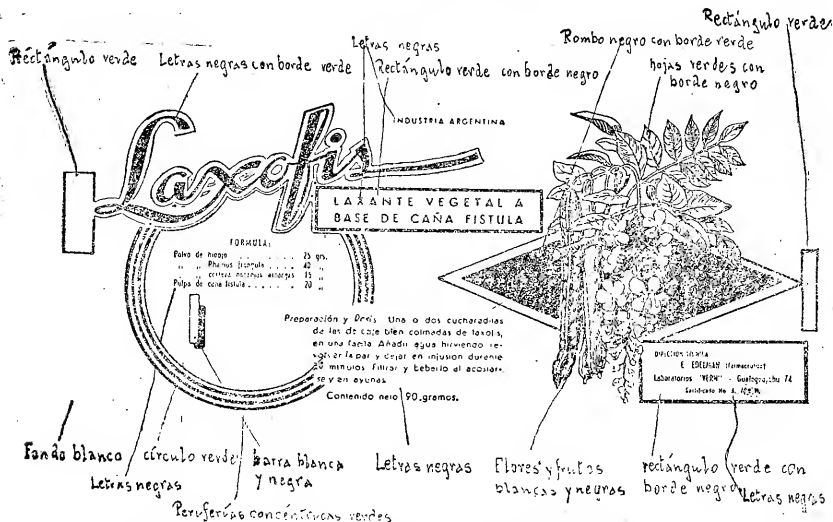 Rectángulo verde
Letras negras con borde verde
Letras negras
Rectángulo verde con borde negro
Rombo negro con borde verde
Rectángulo verde
hojas verdes con
borde negro
INDUSTRIA ARGENTINA
Laxofis
LAXANTE VEGETAL A
BASE DE CAÑA FISTULA
FORMULA:
Polvo de hinojo . . . . . . . . 25 grs.
" " Rhamus frangula . . . 40 "
" " corteza naranjas amargas 15 "
Pulpa de caña fistula . . . . . . 20 "
Preparación y Dosis Una o dos cucharaditas
de las de café bien colmadas de laxofis,
en una tacita Añadir agua hirviendo re-
volver tapar y dejar en infusion durante
20 minutos Filtrar y beberlo al acostar-
se y en ayunas
Contenido neto 90 gramos.
DIRECCION TECNICA
E. EDELMAN (farmaceutico)
Laboratorios "VERH" - Gualeguaychu 74
Certificado No
Fondo blanco
círculo verde
barra blanca
y negra
Letras negras
Flores y frutos
blancas y negras
rectángulo verde con
borde negro
Letras negras
Letras negras
Periferias concéntricas verdes